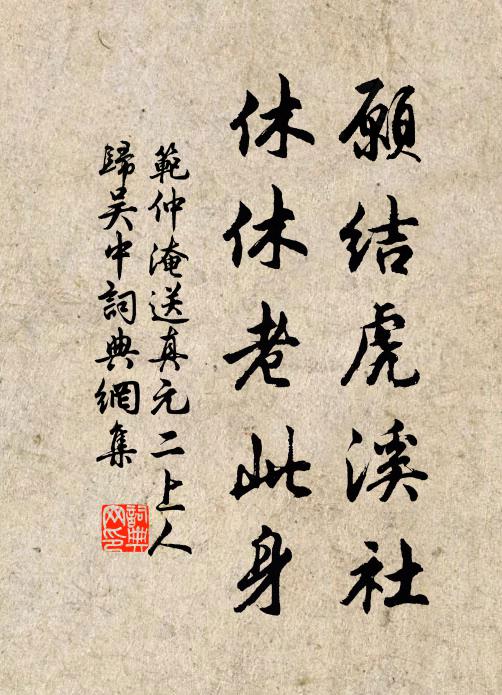 願結虎溪社
休休老此身
範仲淹送真元二上人
歸吴中詞典網集
詞典
网印